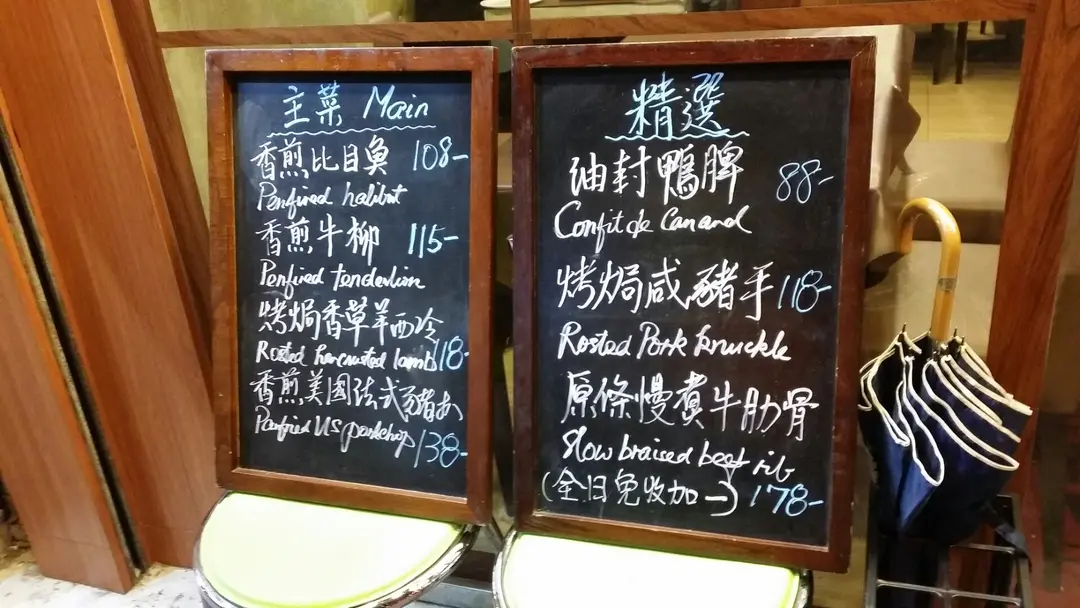 主菜 Main
香煎比目魚 108-
Penfired halibut
香煎牛柳 115-
Penfired tenderlion
烤焗香草羊西冷
Rosted Hercrusted lamb 118-
香煎美國法式豬扒
Panfried US porkchop 138-
精選
油封鴨脾 88-
Confit de Canard
烤焗咸豬手 118-
Rosted Pork knuckle
原條慢煮牛肋骨
Slow braised beef rib
(全日免收加一) 178-